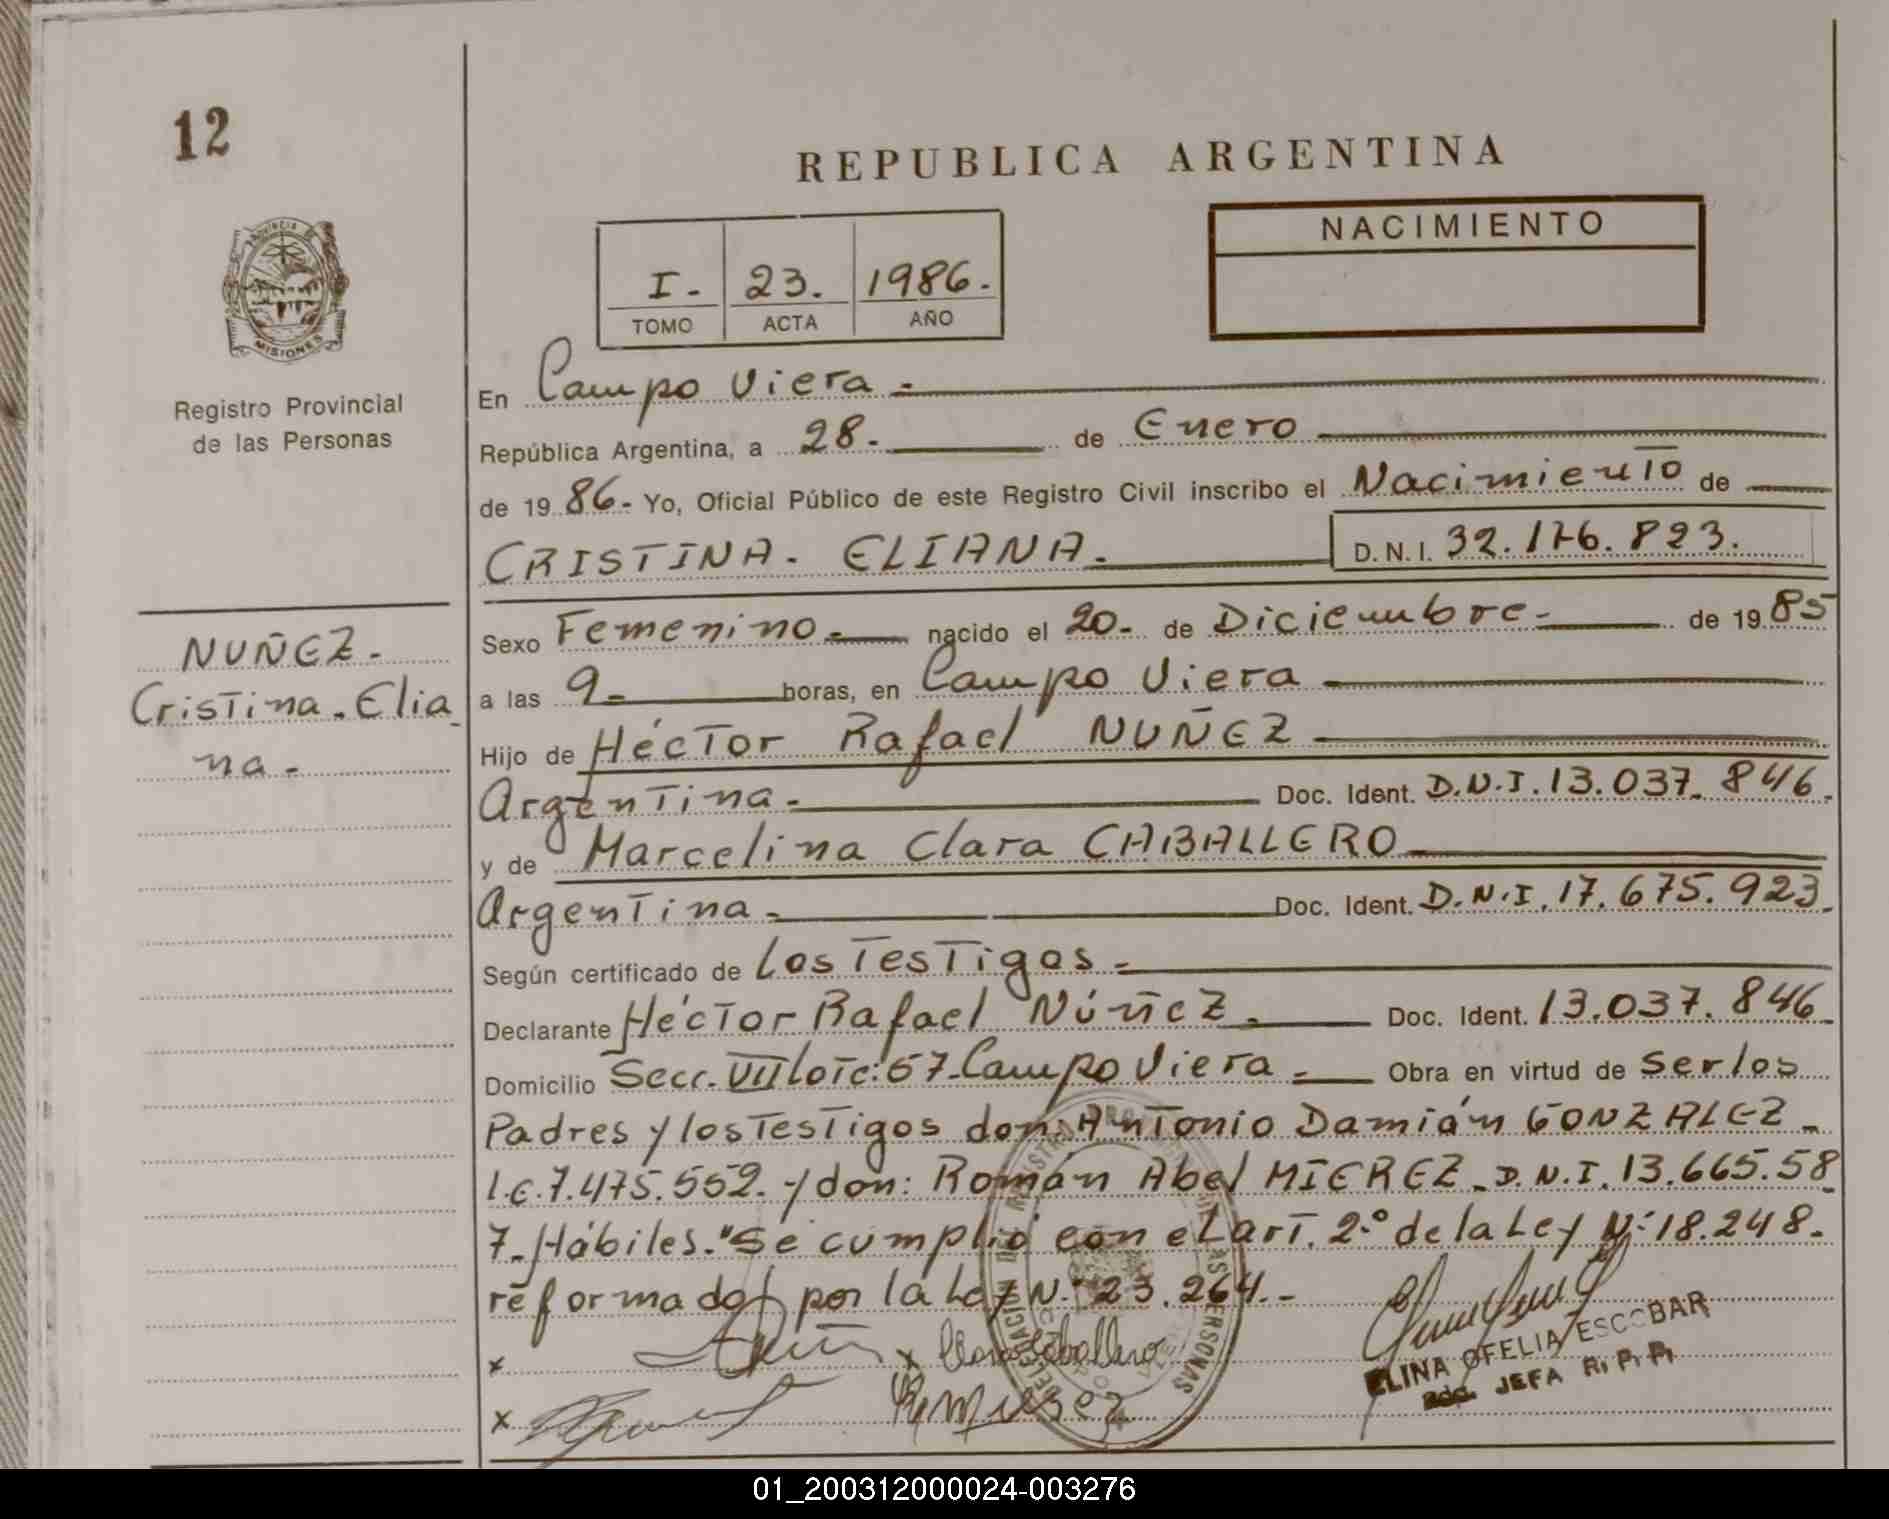 12
REPUBLICA ARGENTINA
NACIMIENTO
I. 23. 1986.
TOMO ACTA AÑO
MISIONES
Registro Provincial
de las Personas
NUÑEZ.
Cristina. Elia
na.
En Campo Viera.
República Argentina, a 28. de Enero
de 1986. Yo, Oficial Público de este Registro Civil inscribo el Nacimiento de
CRISTINA. ELIANA. D.N.I. 32.176.823.
Sexo Femenino. nacido el 20. de Diciembre. de 1985
a las 9. horas, en Campo Viera
Hijo de Héctor Rafael NUÑEZ
Argentina. Doc. Ident. D.N.I. 13.037.846.
y de Marcelina Clara CABALLERO
Argentina. Doc. Ident. D.N.I. 17.675.923.
Según certificado de Los Testigos.
Declarante Héctor Rafael Núñez. Doc. Ident. 13.037.846
Domicilio Secc. VII lote: 67. Campo Viera. Obra en virtud de ser los
Padres y los Testigos don: Antonio Damián GONZALEZ.
L.E. 7.475.552. y don: Román Abel MIEREZ. D.N.I. 13.665.58
7. Hábiles. "Se cumplió con el art. 2º de la Ley Nº 18.248.
reformado por la Ley N.º 23.264.
x x Clara Caballero
x
ELINA OFELIA ESCOBAR
JEFA R. P. P.
01_200312000024-003276